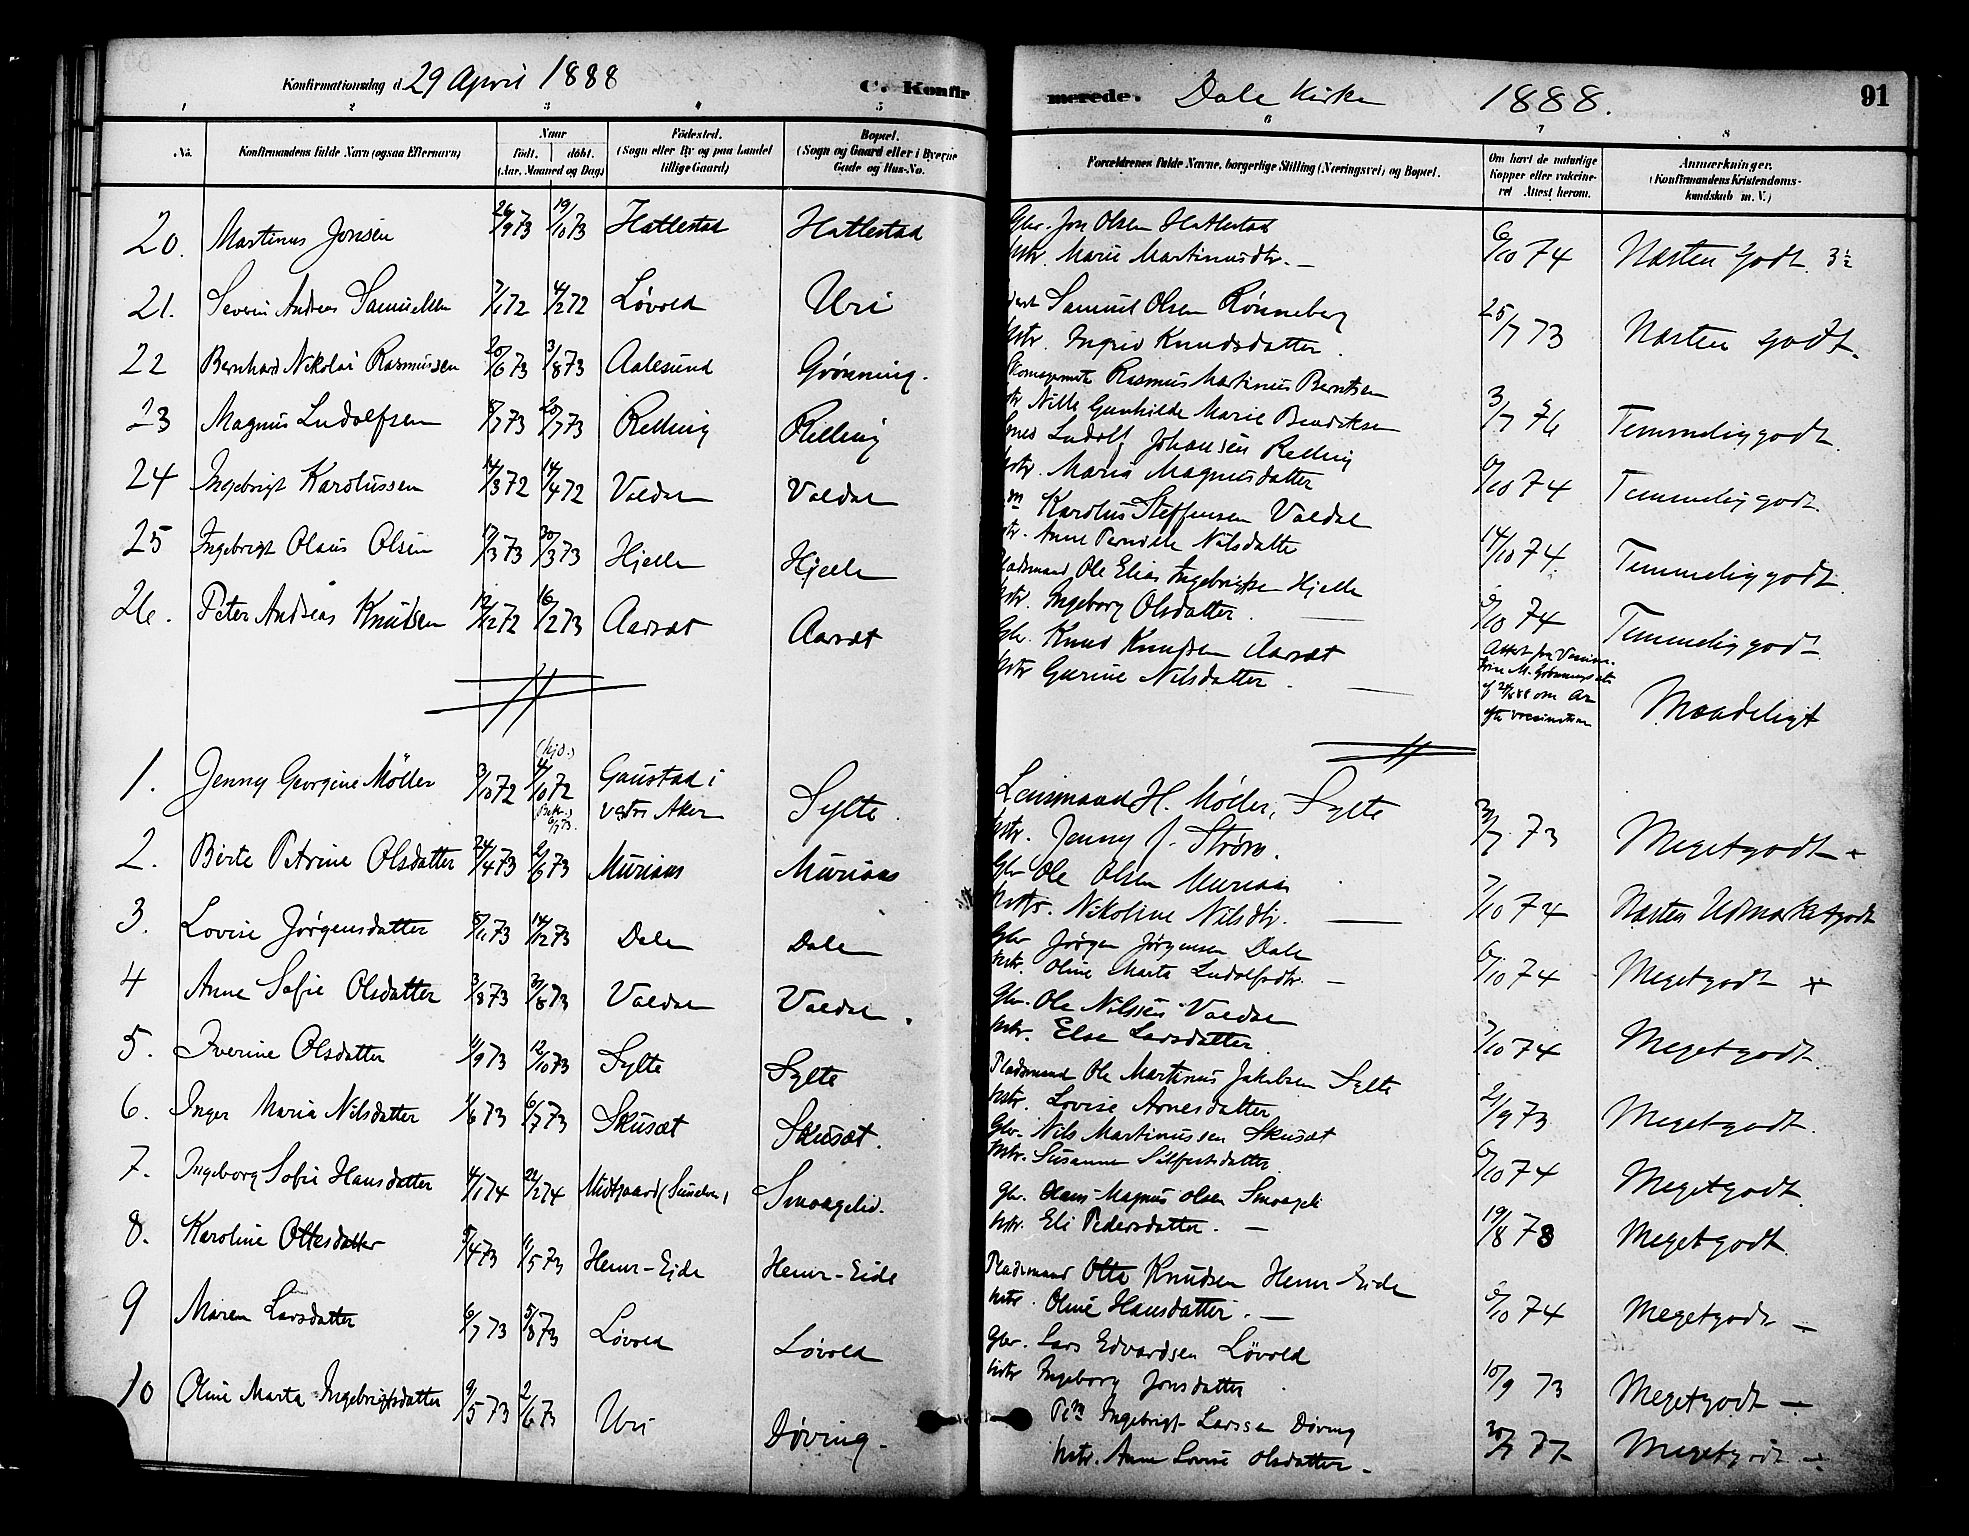 Konfirmationsdag d. 29 April 1888 C. Konfir
merede. Dale Kirke 1888. 91
1 2 3 4 5 6 7 8
No. Konfirmandens fulde Navn (ogsaa Efternavn) Naar födt. döbt. (Aar, Maaned og Dag) Födested. (Sogn eller By og paa Landet tillige Gaard) Bopæl. (Sogn og Gaard eller i Byerne Gade og Hus-No.
Forældrenes fulde Navne, borgerlige Stilling (Næringsvei) og Bopæl. Om havt de naturlige Kopper eller vakcineret Attest herom. Anmærkninger. (Konfirmandens Kristendomskundskab m. V.)
20. Martinus Jonsen 26/9 73 19/10 73 Hattestad Hattestad
Gbr. Jon Olsen Hattestad
Hstr. Marie Martinusdtr. — 6/10 74 Næsten godt. 3½
21. Severin Andreas Samuelsen 7/1 72 4/2 72 Løvold Uri
Samuel Olsen Rønneberg
Hstr. Ingrid Knudsdatter. 25/7 73 Næsten godt.
22 Bernhard Nikolai Rasmussen 20/6 73 3/8 73 Aalesund Grønning.
Rasmus Martinus Berntsen
Nille Gunhilde Marie Bendiksen 3/7 76 Temmelig godt.
23 Magnus Ludolfsen 8/7 73 20/7 73 Relling Relling
Ludolf Johansen Relling
Hstr. Maria Magnusdatter 6/10 74 Temmelig godt.
24 Ingebrigt Karolussen 14/3 72 14/4 72 Valdal Valdal
Karolus Steffensen Valdal
Hstr. Anne Pernille Nilsdatter 14/10 74. Temmelig godt.
25 Ingebrigt Olaus Olsen 17/3 73 30/3 73 Hjelle Hjelle
Pladsmand Ole Elias Ingebrigtsen Hjelle
Hstr. Ingeborg Olsdatter. — 6/10 74 Temmelig godt.
26. Peter Andreas Knudsen 12/12 72 16/2 73 Aarsæt Aarsæt
Gbr. Knud Knudsen Aarsæt
Hstr Gurine Nilsdatter. — Attest fra
om Ar
efter vaccination Maadeligt
1. Jenny Georgine Möller 3/10 72 (hjd.) 4/10 72 6/7 73. Gaustad i vestre Aker Sylte.
Lensmand H. Möller, Sylte
Hstr. Jenny J. Strøm. 31/7 73 Megetgodt
2. Birte Petrine Olsdatter 24/4 73 2/6 73 Muriaas Muriaas
Gbr Ole Olsen Muriaas
Hstr. Nikoline Nilsdtr. — 7/10 74 Næsten Udmærketgodt
3. Lovise Jørgensdatter 8/11 73 14/12 73 Dale Dale
Gbr Jørgen Jørgensen Dale
Hstr. Oline Marta Ludolfsdtr. — 6/10 74 Megetgodt
4 Anne Sofie Olsdatter 3/8 73 31/8 73 Valdal Valdal.
Gbr. Ole Nilsen Valdal
Hstr. Else Larsdatter 7/10 74 Megetgodt.
5. Iverine Olsdatter 11/9 73 12/10 73 Sylte Sylte
Pladsmand Ole Martinus Jakobsen Sylte
Hstr. Lovise Arnesdatter 2/9 73 Megetgodt.
6. Inger Maria Nilsdatter 1/6 73 6/7 73 Skusæt Skusæt.
Gbr. Nils Martinussen Skusæt
Hstr. Susanne Silfestsdatter. 6/10 74 Megetgodt.
7. Ingeborg Sofie Hansdatter 4/1 74 22/2 74 Midtgaard (Sunelven) Smoagelid.
Gbr. Hans Magnus Olsen Smoageli
Hstr. Eli Pedersdatter. — 19/8 78 Megetgodt.
8. Karoline Ottesdatter 5/4 73 11/5 73 Henr-Eide Henr-Eide
Pladsmand Otte Knudsen Henr-Eide
Hstr. Oline Hansdatter. — 6/10 74 Megetgodt —
9 Maren Larsdatter 6/7 73 5/8 73 Løvold Løvold
Gbr. Lars Edvardsen Løvold
Hstr Ingeborg Jonsdatter 10/9 73 Megetgodt —
10 Oline Marta Ingebrigtsdatter 9/5 73 2/6 73 Uri Døving.
Plm Ingebrigt Larssen Døving
Hstr. Anne Lovise Olsdatter. 30/7 77 Megetgodt —